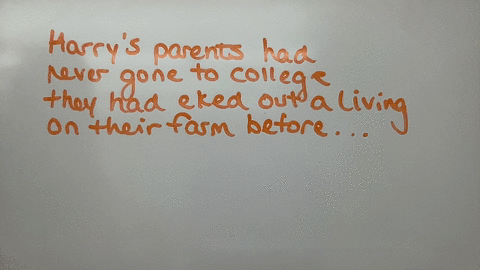 Harry's parents had
never gone to college
they had eked out a living
on their farm before...